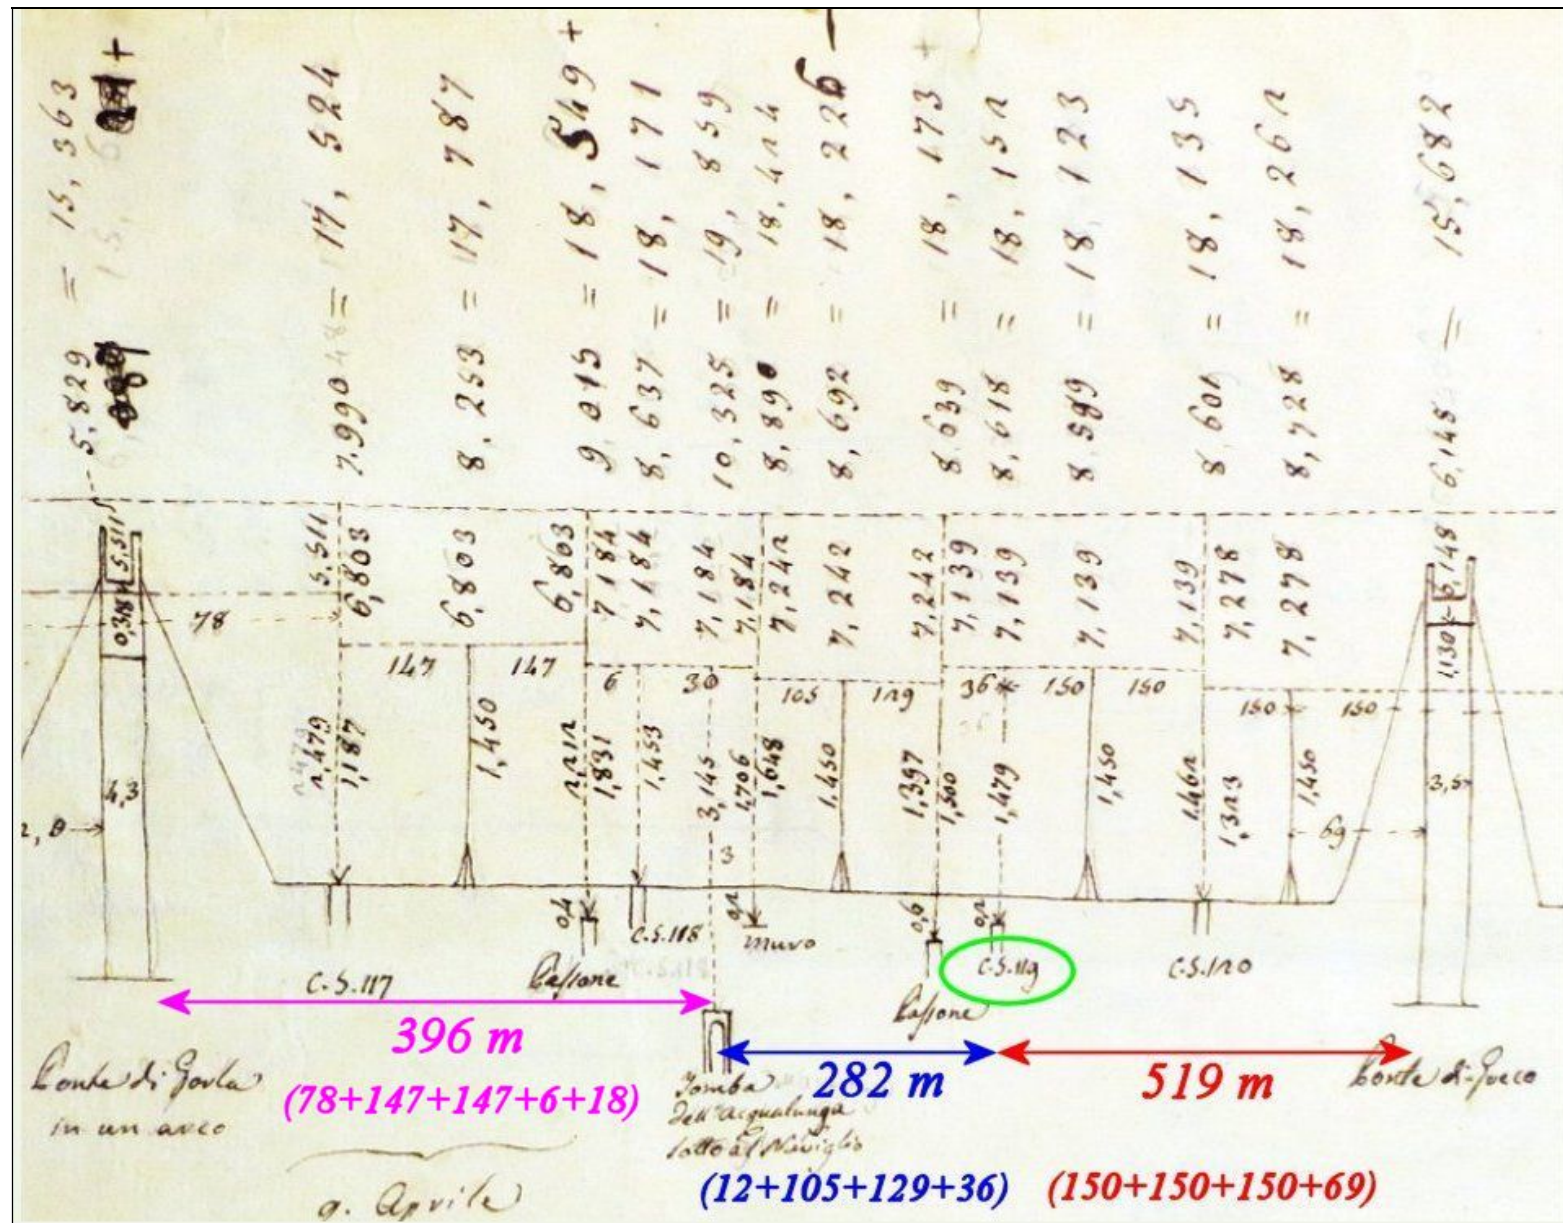 5,829 = 15,363
+
7,990 = 17,524
8,253 = 17,787
9,015 = 18,549 +
8,637 = 18,171
10,325 = 19,859
8,890 = 18,424
8,692 = 18,226
8,639 = 18,173 +
8,618 = 18,152
8,589 = 18,123
8,601 = 18,135
8,728 = 18,262
6,148 = 15,682
5,511
5,511
6,803
6,803
6,803
7,184
7,184
7,184
7,184
7,242
7,242
7,242
7,139
7,139
7,139
7,139
7,278
7,278
5,148
0,318
78
147
147
6
30
105
129
36
150
150
150
150
1,130
4,3
2,479
1,187
1,450
2,212
1,831
1,453
3,145
1,706
1,648
1,450
1,397
1,500
1,479
1,450
1,462
1,323
1,450
3,5
69
3
0,4
0,2
0,6
0,2
C.S.117
Cassone
C.S.118
muro
Cassone
C.S.119
C.S.120
396 m
282 m
519 m
(78+147+147+6+18)
(12+105+129+36)
(150+150+150+69)
Ponte di Gorla
in un arco
Tomba
dell'Acqualunga
sotto al Naviglio
Ponte di Greco
9. Aprile